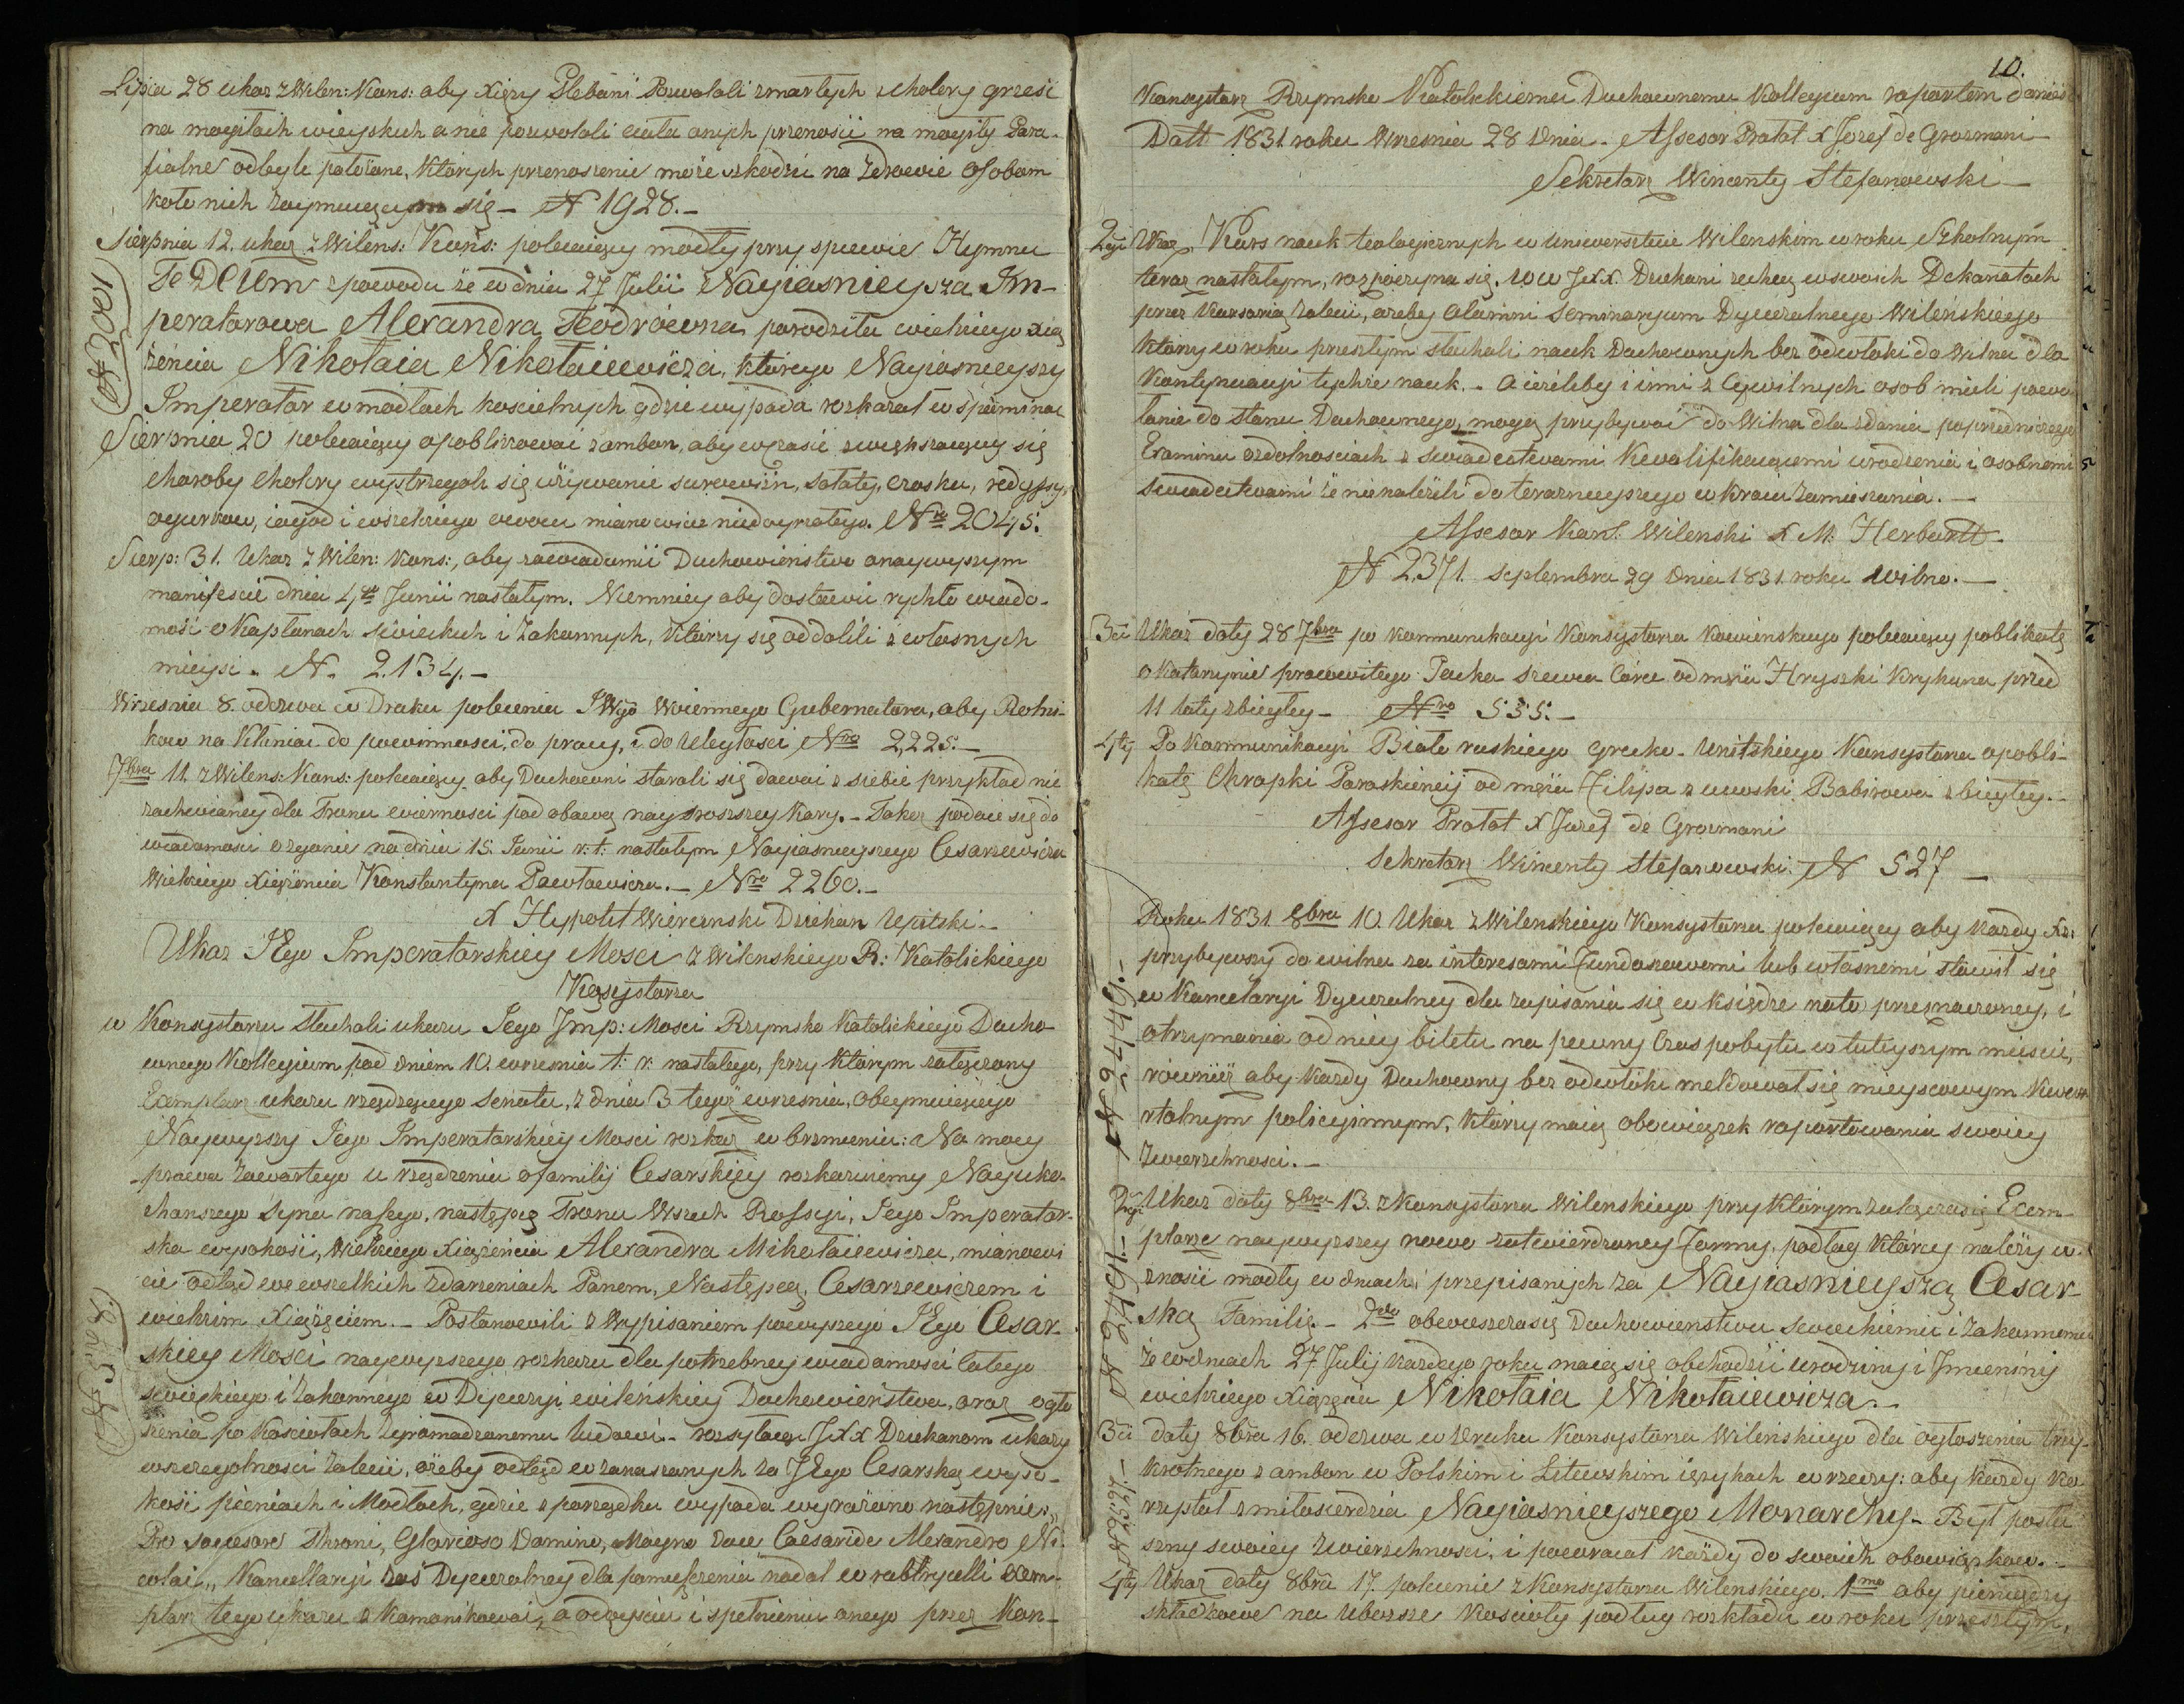 Lipca 28 ukaz z Wilen: Kons: aby Xięży Plebani Pozwolali zmarłych z cholery grześć
na mogiłach wieyskich a nie pozwolali ciała onych przenosić na mogiły Para-
fialne odległe położone, których przenoszenie może szkodzić na Zdrowie osobom
koło nich zaymuięcym się - N 1928.-
Sierpnia 12. ukaz z Wilens: Kons: polecaięcy modły przy spiewie Hymnu
Te Deum z powodu że w dniu 27 Julii Nayiasnieysza Im-
peratorowa Alexandra Teodrówna porodziła wielkiego xią
żęncia Nikołaia Nikołaiewicza, którego Nayiasnieyszy
Imperator w modłach koscielnych gdzie wypada rozkazał wspominać
N 2001
Sierpnia 20 polecaięcy opoblizować z ambon, aby w czasie zwiększaięcey się
choroby cholery wystrzegali się używanie surowizn, sałaty, czosku, redyssy,
ogurkow, iagod i wszelkiego owocu mianowicie niedoyrzałego. Nro 2045.
Sierp: 31. Ukaz z Wilen: Kons:, aby zawiadomić Duchowieństwo o naywyższym
manifescie dnia 4go Junii nastałym. Niemniey aby dostawić rychło wiado-
mość o Kapłanach świeckich i Zakonnych, którzy się oddalili z własnych
mieysc. N. 2.134.-
Wrzesnia 8. odezwa w Druku polecenia JWgo Woiennego Gubernatora, aby Rolni-
kow na kłaniać do powinnosci, do pracy, i do Uległosci Nro 2,225.-
7bra 11. z Wilens: Kons: polecaięcy aby Duchowni starali się dawać z siebie przykład nie
zachwianey dla Tronu wiernosci pod obawą naysroższey Kary. - Także podaie się do
wiadomosci o zgonie na dniu 15. Junii r: t: nastałym Nayiasnieyszego Cesarzewicza
Wielkiego Xiążęncia Konstantyna Pawłowicza. - Nro 2260.-
X Hypolit Wierzinski Dziekan Upitski.-
Ukaz JEgo Imperatorskiey Mosci z Wilenskiego R: Katolickiego
Kąsystorza
w Konsystorzu słuchali ukazu Jego Imp: Mosci Rzymsko Katolickiego Ducho-
wnego Kollegium pod dniem 10. wrzesnia t: r: nastałego, przy którym załączony
Exemplarz ukazu rządzącego Senatu, z dnia 3 tegoż wrzesnia, obeymuięcego
Naywyższy Jego Imperatorskiey Mosci rozkaz w brzmieniu: Na mocy
prawa zawartego u rządzeniu o familij Cesarskiey rozkazuiemy Nayuko-
chanszego Syna naszego, następcę Tronu Wszech Rossyi, Jego Imperator-
ska wysokość, Wielkiego Xiążęncia Alexandra Mikołaiewicza, mianowi
cie odtąd we wszelkich zdarzeniach Panem, Następcą, Cesarzewiczem i
wielkim Xiążęciem. - Postanowili z Wypisaniem powyższego JEgo Cesar-
skiey Mosci naywyższego rozkazu dla potrzebney wiadomosci całego
swieckiego i Zakonnego w Dijecezyi wileńskiey Duchowieństwa, oraz ogło
szenia po Kosciołach zgromadzonemu ludowi - rozsyłaiąc JXX Dziekanom ukazy
wszczegolnosci zalecić, ażeby odtąd w zanaszanych za JEgo Cesarską wyso-
kość pieniach i Modłach, gdzie z porządku wypada wyrażono następnie „
Pro successore Throni, Glorioso Domino, Magno Duce Caesaride Alexandro Ni
colai „ Kancellaryi zaś Dyecezalney dla pomieszczenia nadal w rubrycelli exem-
plarz tego ukazu zkomunikować, a odezyściu i spełnieniu onego przez Kon-
10.
Konsystorz Rzymsko Katolickiemu Duchownemu Kollegium raportem donieść
Datt 1831 roku Wrzesnia 28 Dnia. Assesor Prałat X Jozef de Grozmani
Sekretarz Wincenty Stefanowski -
2gi Ukaz, Kurs nauk teologicznych w Uniwersitecie Wilenskim w roku Szkolnym
teraz nastałym, rozpoczyna się. WW JXX. Dziekani zechcą w swoich Dekanatach
przez Kursoria zalecić, ażeby Alumni Seminaryum Dyecezalnego Wileńskiego
którzy w roku przeszłym słuchali nauk Duchownych bez odwłoki do Wilna dla
kontynuacyi tychże nauk. - a ieżeliby i inni z Cywilnych osob mieli powo
łanie do stanu Duchownego, mogą przybywać do Wilna dla zdania poprzedniczego
Examinu o zdolnościach z swiadectwami kwalifikuięcemi urodzenie i osobnemi
swiadectwami że nie należeli do teraznieyszego w kraiu zamieszania. -
Assesor Kons: Wilenski X M: Herburtt.
N 2371. Septembra 29 Dnia 1831. roku Wilno. -
3ci Ukaz daty 28 7bra po kommunikacyi Konsystorza Kowienskiego polecaięcy poblikatę
o Katarzynie pracowitego Jacka szewca Corce od męża Hryszki Krykuna przed
11 laty zbiegłey - Nro 535.-
4ty Po Kommunikacyi Biało ruskiego greko-Unitskiego Konsystorza o pobli-
katę Chrapki Paraskieviej od męża Filipa z wioski Babirowa zbiegłey. -
Assesor Prałat X Jozef de Grozmani
Sekretarz Wincenty Stefanowski. N 527 -
Roku 1831. 8bra 10. Ukaz z Wilenskiego Konsystorza polecaięcy aby każdy Xz:
przybywszy do wilna za interesami funduszowemi lub własnemi stawił się
w Kancelaryi Dyecezalney dla zapisania się w księdze na to przeznaczoney, i
otrzymania od niey biletu na pewny Czas pobytu w tuteyszym miescie,
rownież aby każdy Duchowny bez odwłoki meldował się mieyscowym kwar
rtalnym policyinnym, którzy maią obowiązek raportowania swoiey
Zwierzchnosci. -
2gi. Ukaz daty 8bra 13. z Konsystorza Wilenskiego przy którym załącza się Exem-
plarze naywyższey nowo zatwierdzoney formy, podług którey należy w-
znosić modły w dniach przepisanych za Nayiasnieyszą Cesar-
ską Familię. - 2do obwieszcza się Duchowieństwu Swieckiemu i Zakonnemu
że w dniach 27 Julij każdego roku maią się obchodzić urodziny i Imieniny
wielkiego Xiążęcia Nikołaia Nikołaiewicza. -
3ci daty 8bra 16. odezwa w Druku Konsystorza Wileńskiego dla ogłoszenia trzy-
krotnego z ambon w Polskim i Litewskim ięzykach w rzeczy: aby każdy ko-
rzystał z miłosierdzia Nayiasnieyszego Monarchy - Był posłu
szny swoiey zwierzchnosci, i powracał każdy do swoich obowiązkow. -
4ty Ukaz daty 8bra 17. polecenie z Konsystorza Wilenskiego. 1mo aby pieniądzy
składkowe na Uboższe Koscioły podług rozkładu w roku przeszłym,